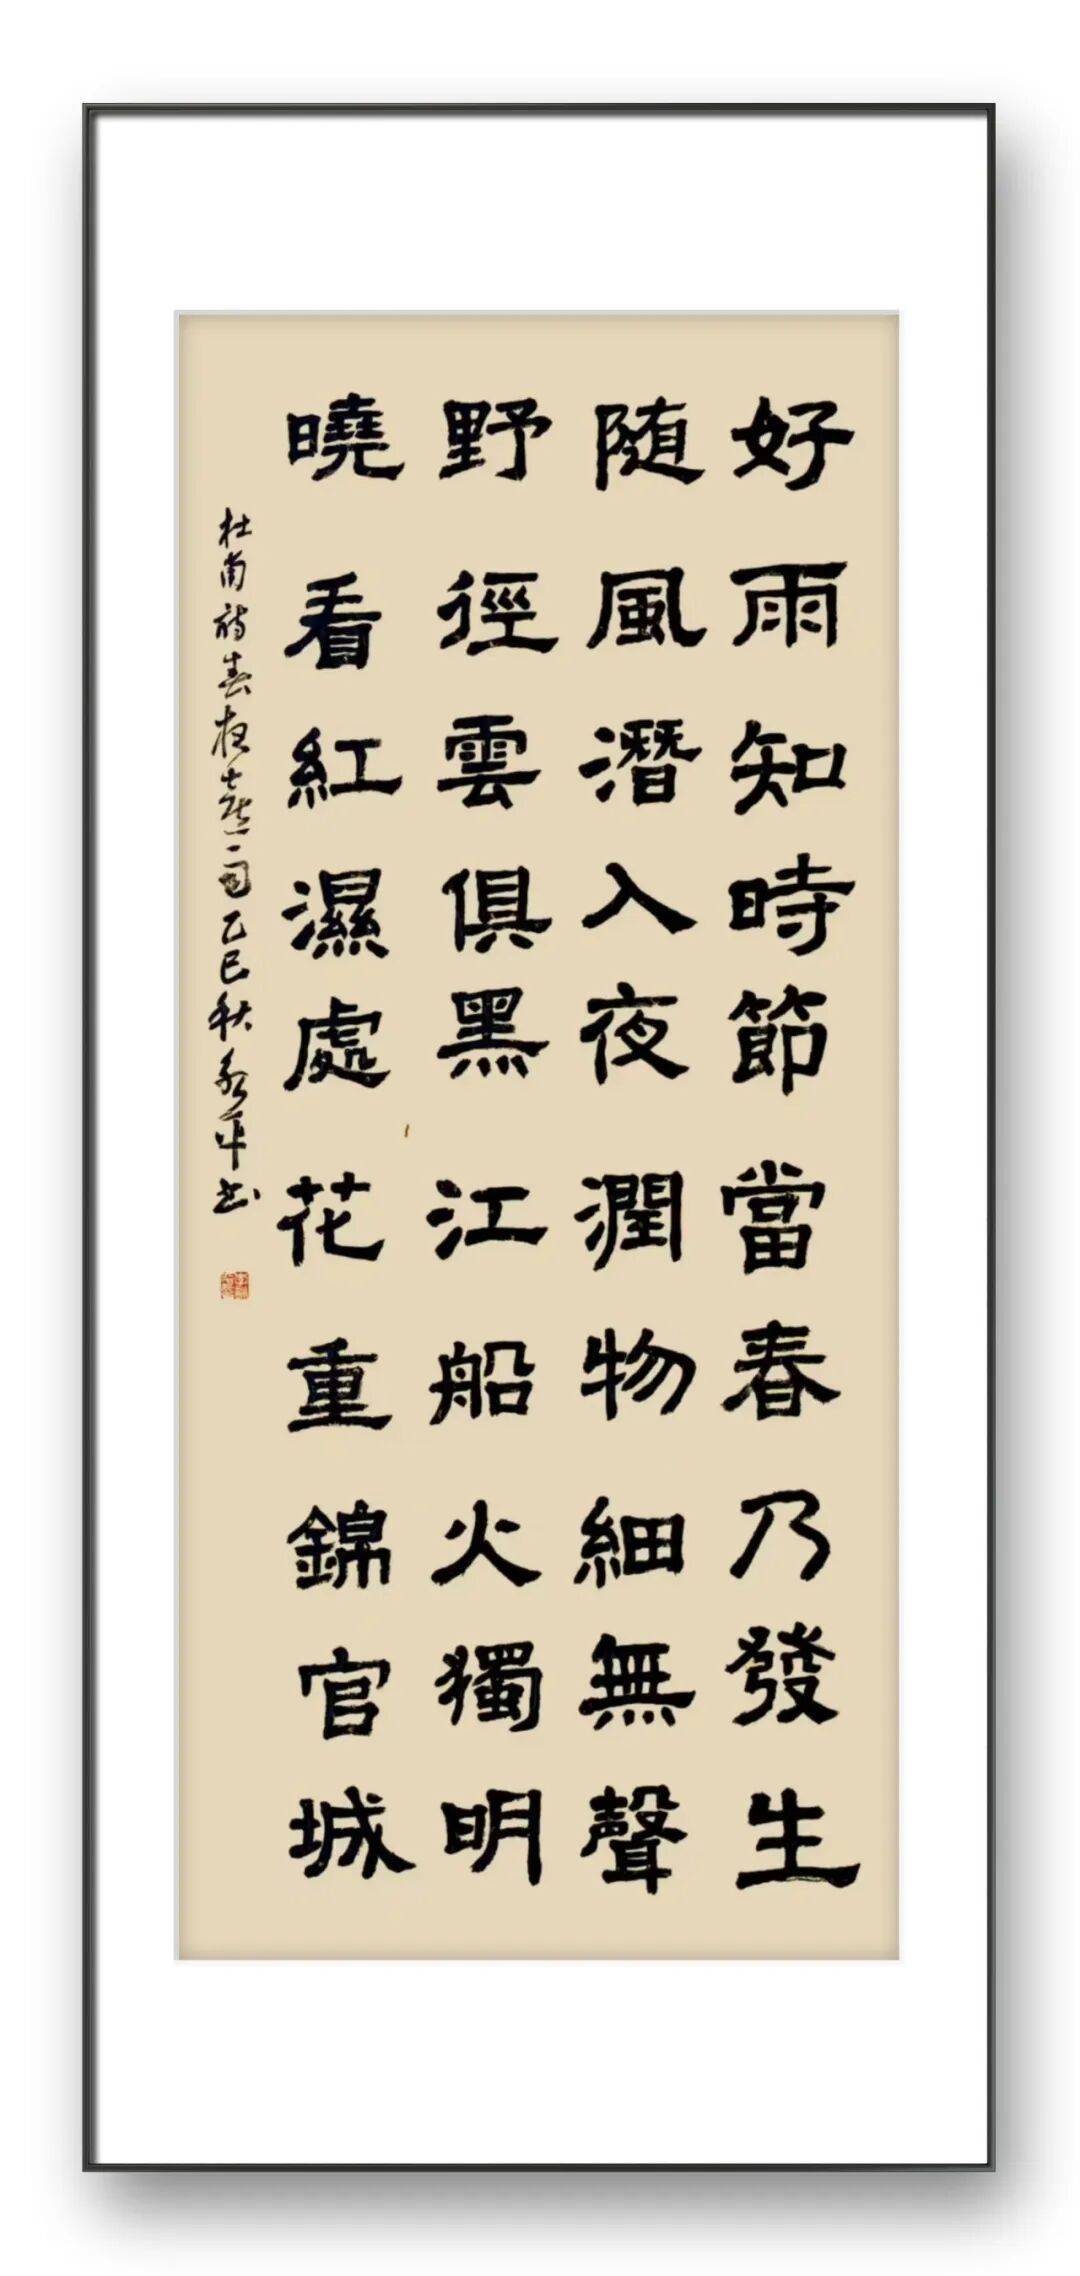 好雨知時節當春乃發生
随風潛入夜潤物細無聲
野徑雲俱黑江船火獨明
曉看紅濕處花重錦官城
杜甫詩春夜喜雨一首乙巳秋永平书